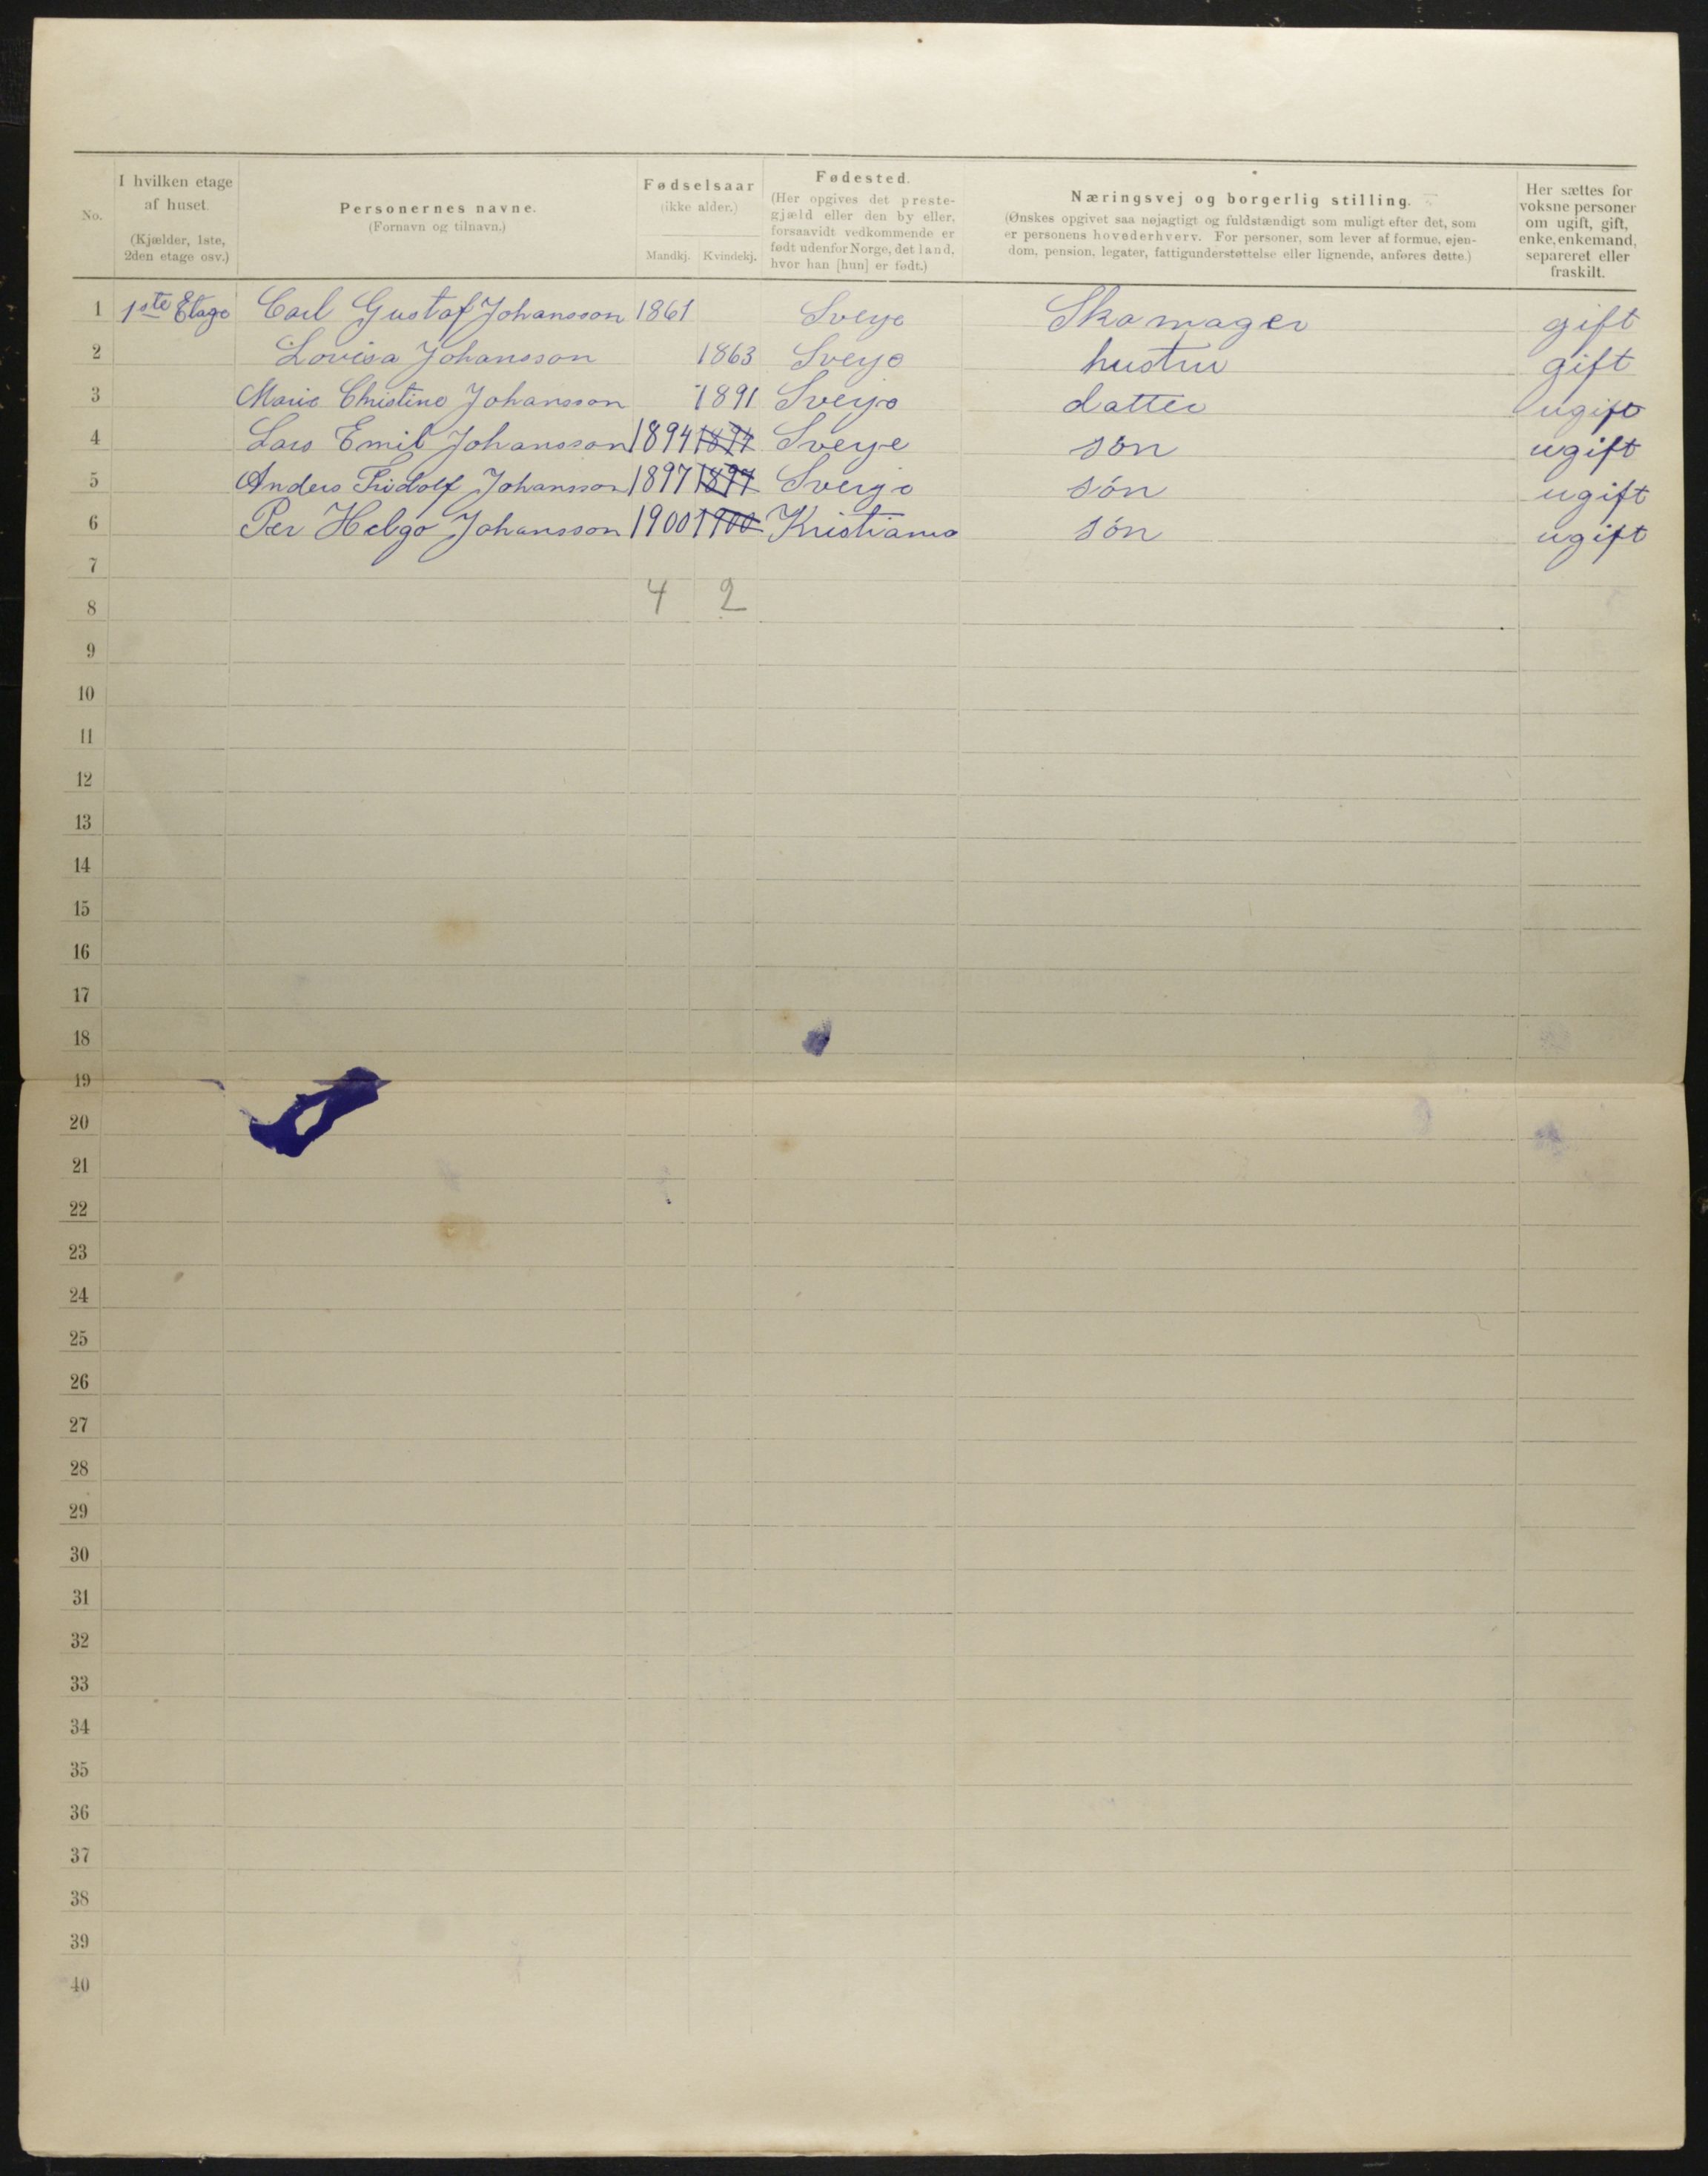 No.
I hvilken etage
af huset.
(Kjælder, 1ste,
2den etage osv.)
Personernes navne.
(Fornavn og tilnavn.)
Fødselsaar
(ikke alder.)
Mandkj. Kvindekj.
Fødested.
(Her opgives det preste-
gjæld eller den by eller,
forsaavidt vedkommende er
født udenfor Norge, det land,
hvor han [hun] er født.)
Næringsvej og borgerlig stilling.
(Ønskes opgivet saa nøjagtigt og fuldstændigt som muligt efter det, som
er personens hovederhverv. For personer, som lever af formue, ejen-
dom, pension, legater, fattigunderstøttelse eller lignende, anføres dette.)
Her sættes for
voksne personer
om ugift, gift,
enke, enkemand,
separeret eller
fraskilt.
1 1ste Etage Carl Gustaf Johansson 1861 Sverje Skomager gift
2 Lovisa Johansson 1863 Sverje hustru gift
3 Marie Christine Johansson 1891 Sverje datter ugift
4 Lars Emil Johansson 1894 1894 Sverje són ugift
5 Anders Fridolf Johansson 1897 1897 Sverje són ugift
6 Per Helge Johansson 1900 1900 Kristiania són ugift
7
8 4 2
9
10
11
12
13
14
15
16
17
18
19
20
21
22
23
24
25
26
27
28
29
30
31
32
33
34
35
36
37
38
39
40